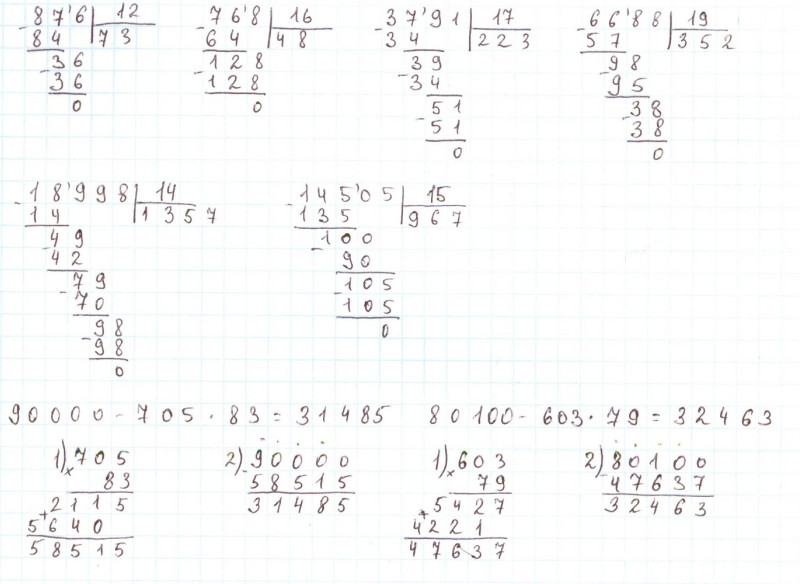 87'6 12
84 73
36
36
0
76'8 16
64 48
128
128
0
37'91 17
34 223
39
34
51
51
0
66'88 19
57 352
98
95
38
38
0
18'998 14
14 1357
49
42
79
70
98
98
0
145'05 15
135 967
100
90
105
105
0
90000 - 705 · 83 = 31485
1) × 705
83
2115
+
5640
58515
2) - 90000
58515
31485
80100 - 603 · 79 = 32463
1) × 603
79
5427
+
4221
47637
2) - 80100
47637
32463